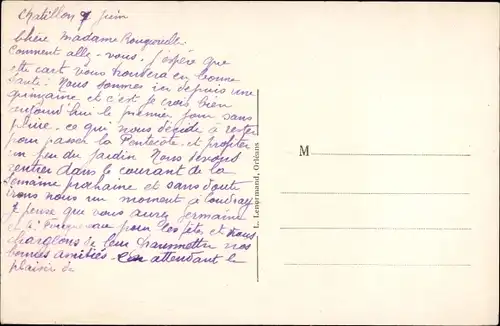 Chatillon 9 Juin
Chère Madame
Comment allez-vous. J'espère que
cette cart vous trouvera en bonne
santé. Nous sommes ici depuis une
quinzaine et c'est je crois bien
aujourd'hui le premier jour sans
pluie. ce qui nous décide à rester
pour passer la Pentecôte. et profiter
un peu du jardin Nous devons
rentrer dans le courant de la
semaine prochaine et sans doute
irons nous un moment à Coudray
Je pense que vous aurez Germaine
et pour les fêtes, et nous
chargeons de leur transmettre nos
bonnes amitiés. En attendant le
plaisir de
M
L. Lenormand, Orléans